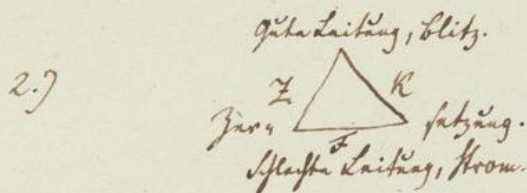 Gute Leitung, Blitz.
2.) Z K
Zer= setzung.
F
Schlechte Leitung, Strom.